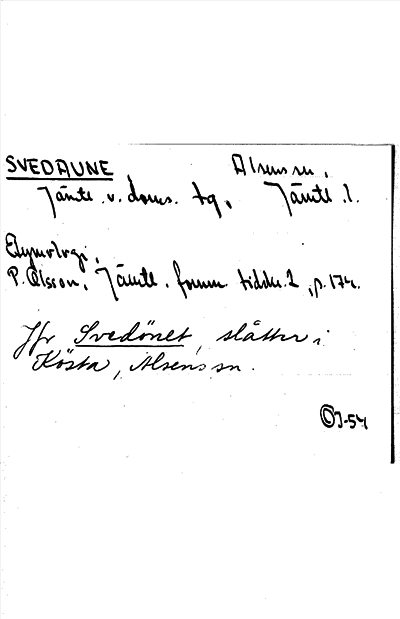 SVEDAUNE Alsens sn.
Jämtl. v. doms. tg. Jämtl. l.
Etymologi.
P. Olsson, Jämtl. fornm. tidskr. 2, p. 174.
Jfr Svedönet, slåtter i
Kösta, Alsens sn.